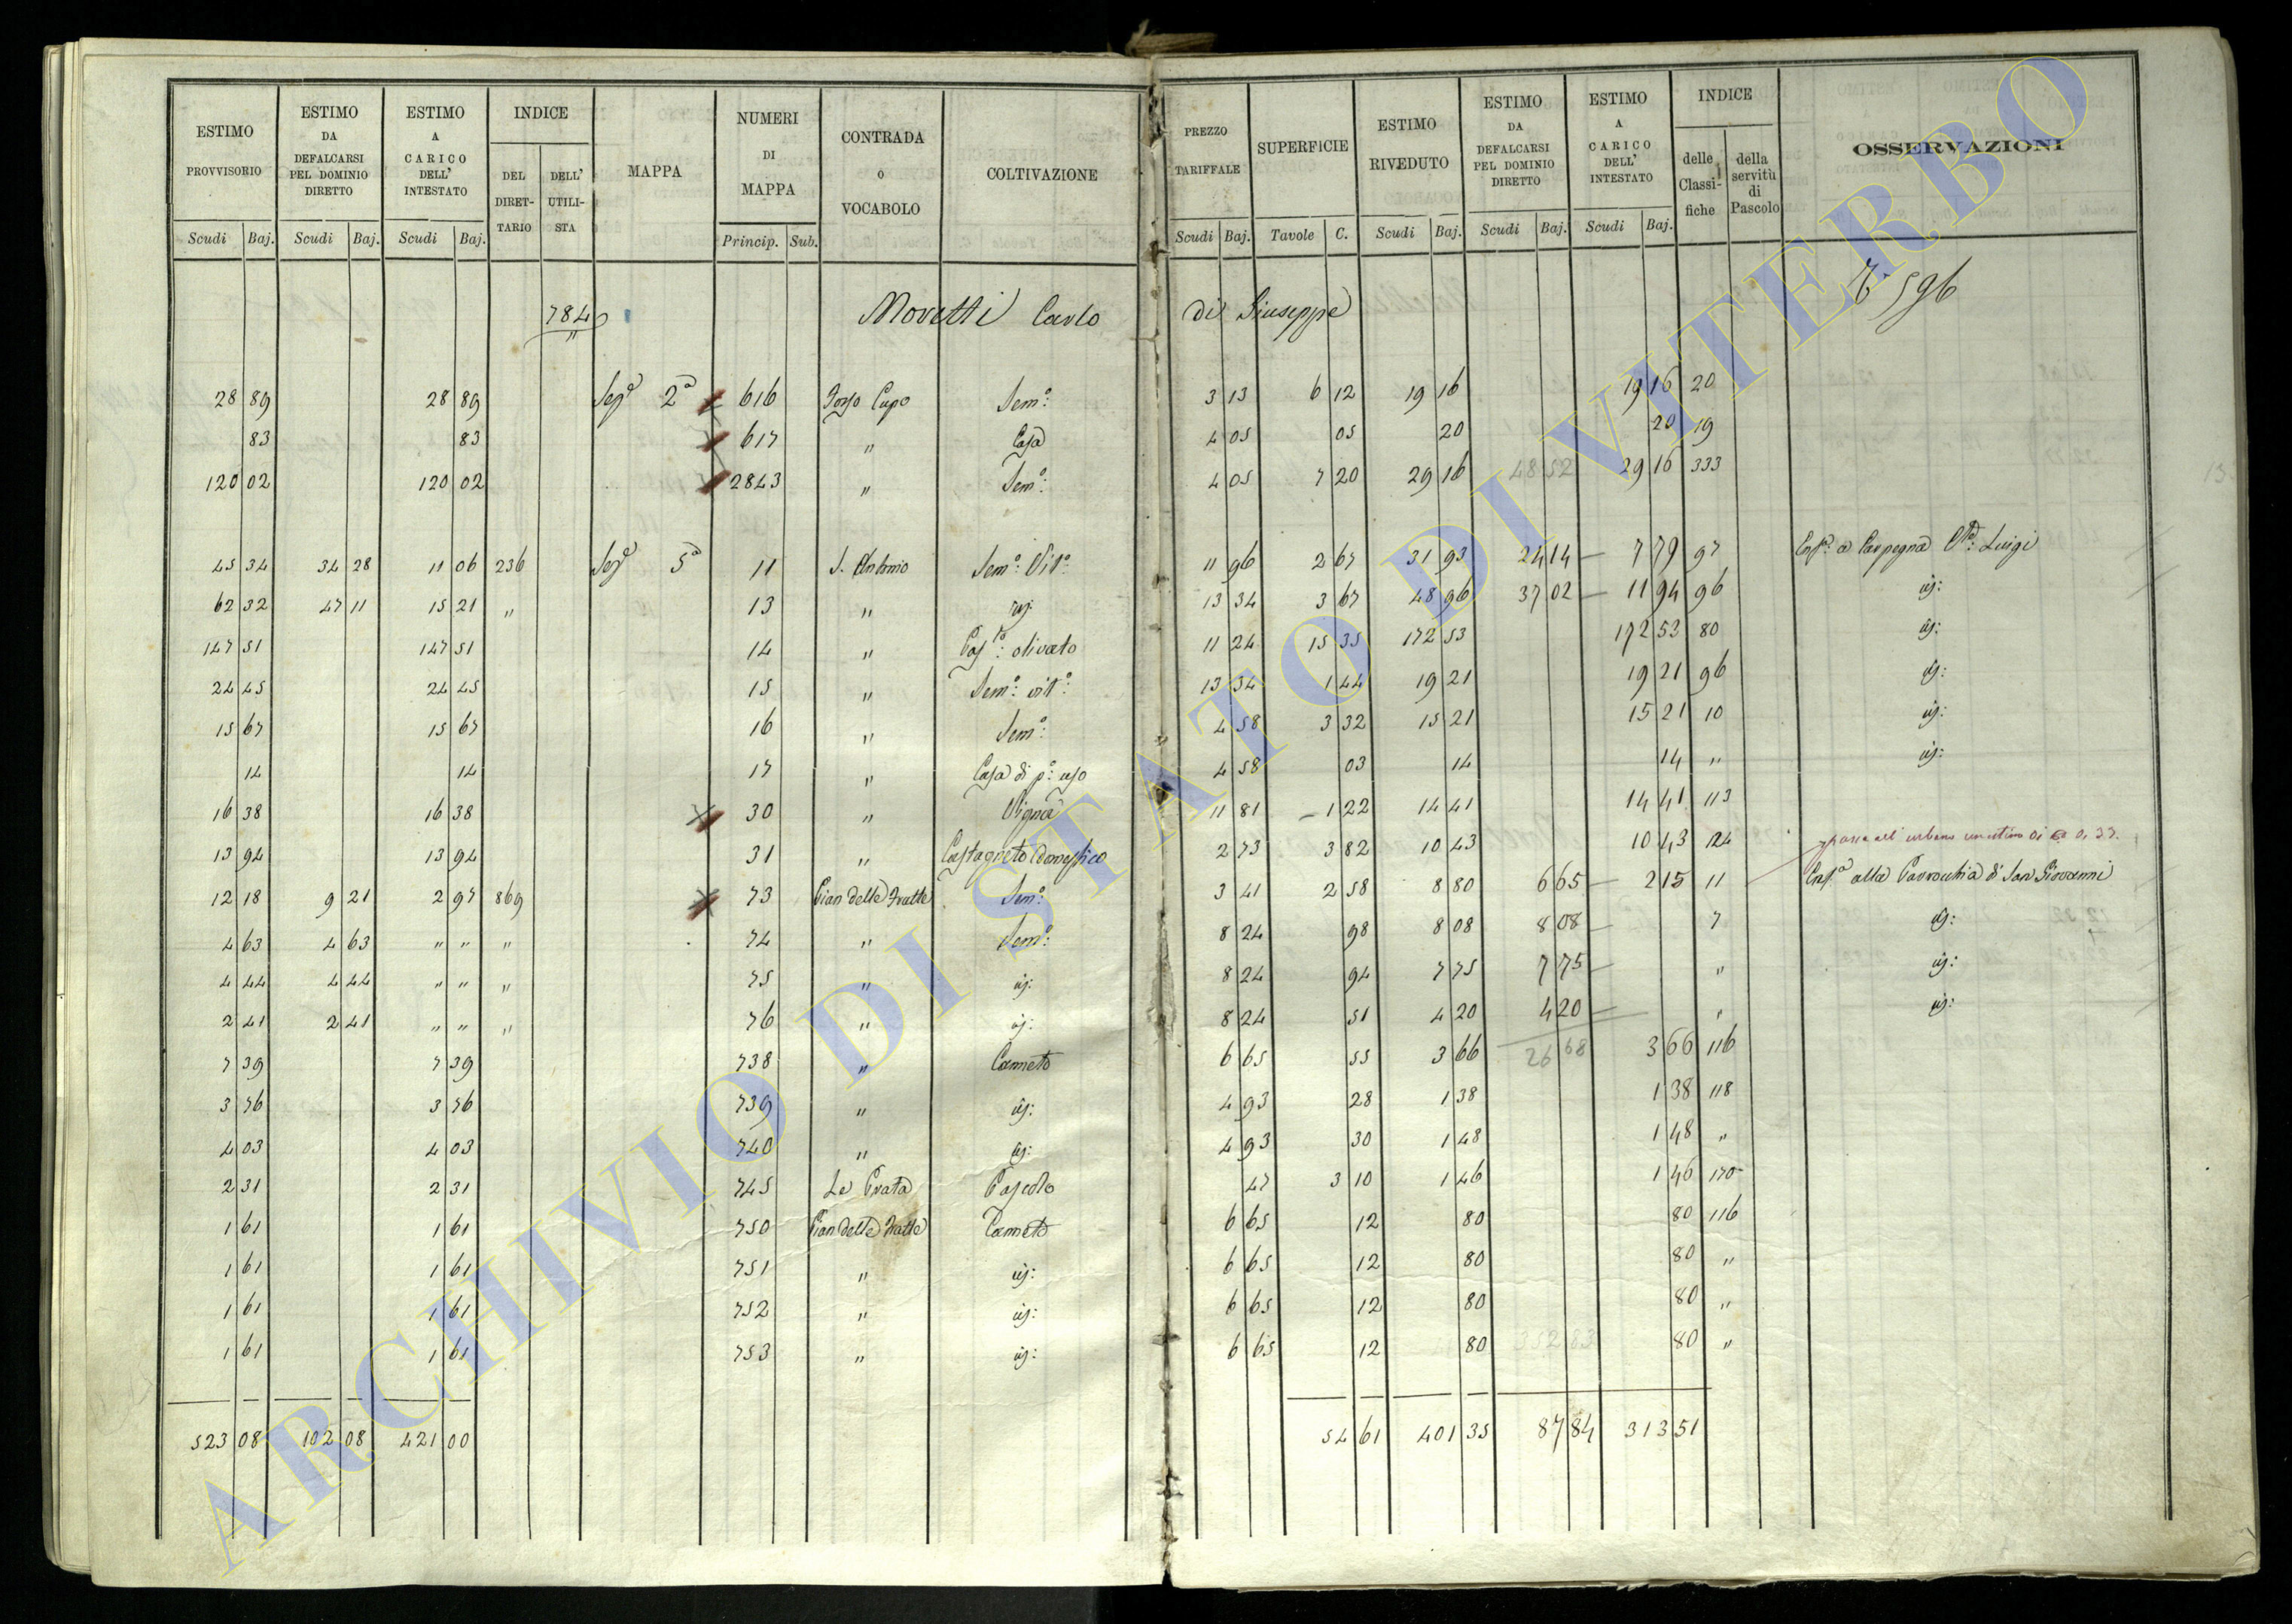 ESTIMO PROVVISORIO | ESTIMO DA DEFALCARSI PEL DOMINIO DIRETTO | ESTIMO A CARICO DELL' INTESTATO | INDICE DEL DIRETTARIO | DELL' UTILISTA | MAPPA | NUMERI DI MAPPA | CONTRADA O VOCABOLO | COLTIVAZIONE | PREZZO TARIFFALE | SUPERFICIE | ESTIMO RIVEDUTO | ESTIMO DA DEFALCARSI PEL DOMINIO DIRETTO | ESTIMO A CARICO DELL' INTESTATO | INDICE delle Classifiche | della servitù di Pascolo | OSSERVAZIONI
Scudi Baj. | Scudi Baj. | Scudi Baj. | Princip. Sub. | Scudi Baj. | Tavole C. | Scudi Baj. | Scudi Baj. | Scudi Baj.
784 Moretti Carlo di Giuseppe 596
28 89 | 28 89 | Sez.a 2a | 616 | Fosso Cupo | Sem.o: | 3 13 | 6 12 | 19 16 | 19 16 | 20
83 | 83 | 617 | " | Casa | 4 05 | 05 | 20 | 20 | 19
120 02 | 120 02 | 2843 | " | Sem.o: | 4 05 | 7 20 | 29 16 | 48 52 | 29 16 | 333
45 34 | 34 28 | 11 06 | 236 | Sez.a 5a | 11 | S. Antonio | Sem.o: Vit.o: | 11 96 | 2 67 | 31 93 | 24 14 | 7 79 | 97 | Enf.a a Carpegna Luigi
62 32 | 47 11 | 15 21 | " | 13 | " | id: | 13 34 | 3 67 | 48 96 | 37 02 | 11 94 | 96 | id:
147 51 | 147 51 | 14 | " | Pas.to: olivato | 11 24 | 15 35 | 172 53 | 172 53 | 80 | id:
24 45 | 24 45 | 15 | " | Sem.o: vit.o: | 13 34 | 1 44 | 19 21 | 19 21 | 96 | id:
15 67 | 15 67 | 16 | " | Sem.o: | 4 58 | 3 32 | 15 21 | 15 21 | 10 | id:
14 | 14 | 17 | " | Casa di p.o: uso | 4 58 | 03 | 14 | 14 | " | id:
16 38 | 16 38 | 30 | " | Vigna | 11 81 | 1 22 | 14 41 | 14 41 | 113
13 94 | 13 94 | 31 | " | Castagneto Domestico | 2 73 | 3 82 | 10 43 | 10 43 | 124 | passa all' urbano di 0.33.
12 18 | 9 21 | 2 97 | 869 | 73 | Pian delle Fratte | Sem.o: | 3 41 | 2 58 | 8 80 | 6 65 | 2 15 | 11 | Enf.a alla Parrocchia di San Giovanni
4 63 | 4 63 | " " | " | 74 | " | Sem.o: | 8 24 | 98 | 8 08 | 8 08 | 7 | id:
4 44 | 4 44 | " " | " | 75 | " | id: | 8 24 | 94 | 7 75 | 7 75 | " | id:
2 41 | 2 41 | " " | " | 76 | " | id: | 8 24 | 51 | 4 20 | 4 20 | " | id:
7 39 | 7 39 | 738 | " | Canneto | 6 65 | 55 | 3 66 | 26 68 | 3 66 | 116
3 76 | 3 76 | 739 | " | id: | 4 93 | 28 | 1 38 | 1 38 | 118
4 03 | 4 03 | 740 | " | id: | 4 93 | 30 | 1 48 | 1 48 | "
2 31 | 2 31 | 745 | Le Prata | Pascolo | 47 | 3 10 | 1 46 | 1 46 | 170
1 61 | 1 61 | 750 | Pian delle Fratte | Canneto | 6 65 | 12 | 80 | 80 | 116
1 61 | 1 61 | 751 | " | id: | 6 65 | 12 | 80 | 80 | "
1 61 | 1 61 | 752 | " | id: | 6 65 | 12 | 80 | 80 | "
1 61 | 1 61 | 753 | " | id: | 6 65 | 12 | 80 | 352 83 | 80 | "
523 08 | 102 08 | 421 00 | 54 61 | 401 35 | 87 84 | 313 51
ARCHIVIO DI STATO DI VITERBO